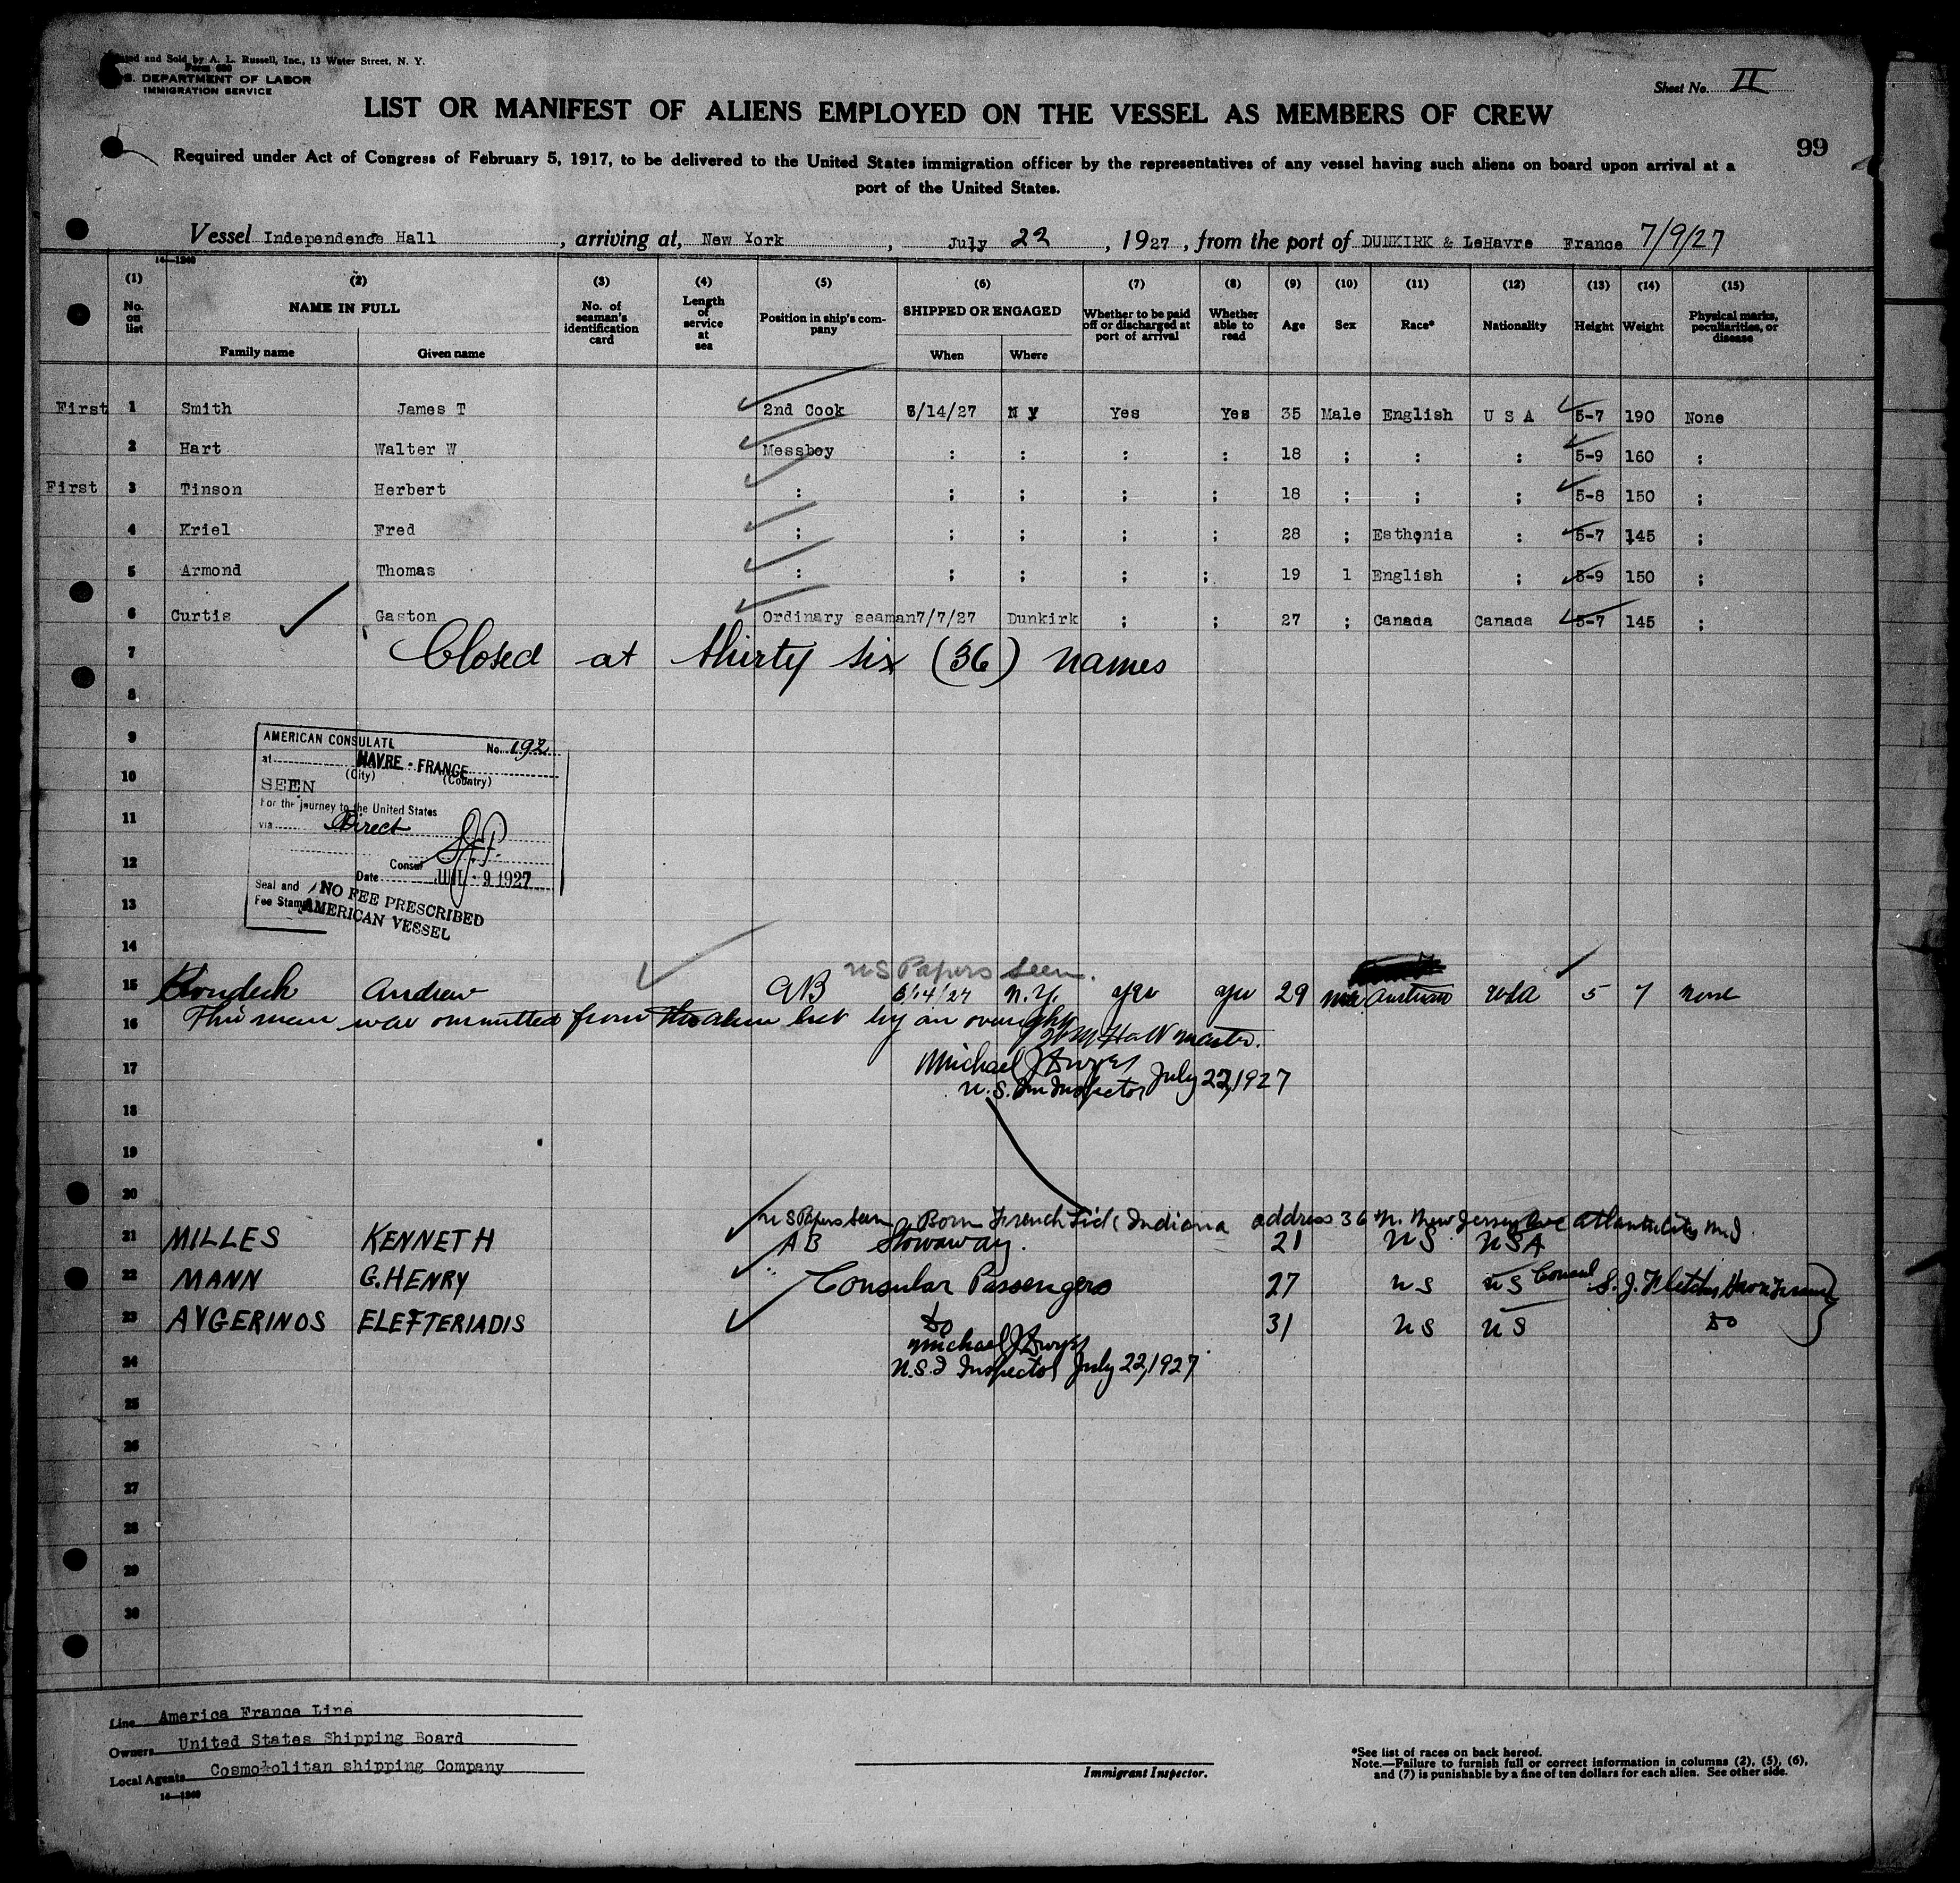 Printed and Sold by A. L. Russell, Inc., 13 Water Street, N. Y.
Form 680
U. S. DEPARTMENT OF LABOR
IMMIGRATION SERVICE
Sheet No. II
LIST OR MANIFEST OF ALIENS EMPLOYED ON THE VESSEL AS MEMBERS OF CREW
99
Required under Act of Congress of February 5, 1917, to be delivered to the United States immigration officer by the representatives of any vessel having such aliens on board upon arrival at a
port of the United States.
Vessel Independence Hall, arriving at, New York, July 22, 1927, from the port of DUNKIRK & LeHavre France 7/9/27
14—1240
(1) (2) (3) (4) (5) (6) (7) (8) (9) (10) (11) (12) (13) (14) (15)
No. on list NAME IN FULL No. of seaman's identification card Length of service at sea Position in ship's company SHIPPED OR ENGAGED Whether to be paid off or discharged at port of arrival Whether able to read Age Sex Race* Nationality Height Weight Physical marks, peculiarities, or disease
Family name Given name When Where
First 1 Smith James T 2nd Cook 6/14/27 N Y Yes Yes 35 Male English U S A 5-7 190 None
2 Hart Walter W Messboy : : : : 18 ; : : 5-9 160 ;
First 3 Tinson Herbert : ; ; ; ; 18 ; ; ; 5-8 150 ;
4 Kriel Fred ; ; ; ; ; 28 ; Esthonia : 5-7 145 ;
5 Armond Thomas : ; ; ; ; 19 1 English ; 5-9 150 ;
6 Curtis Gaston Ordinary seaman 7/7/27 Dunkirk ; ; 27 ; Canada Canada 5-7 145 ;
7 Closed at thirty six (36) names
8
9
AMERICAN CONSULATE No. 192
at HAVRE - FRANCE
(City) (Country)
10
SEEN
For the journey to the United States
11
via Direct
12
Consul
Date JUL - 9 1927
Seal and Fee Stamp NO FEE PRESCRIBED
AMERICAN VESSEL
13
14
U S Papers seen.
15 Andrew AB 6/14/27 N.Y. yes yes 29 male Austrian USA 5 7 none
16 This man was ommitted from the alien list by an oversight
master.
17 Michael J Dwyer
U.S. Im Inspector July 22, 1927
18
19
20
U S Papers seen Born French Lick Indiana address 36 N. New Jersey Ave Atlantic City N.J.
21 MILLES KENNETH AB Stowaway. 21 US USA
22 MANN G. HENRY Consular Passengers 27 US US Consul S. J. Fletcher Havre France
23 AVGERINOS ELEFTERIADIS Do 31 US US Do
Michael J Dwyer
24 U.S.I Inspector July 22, 1927
25
26
27
28
29
30
Line America France Line
Owners United States Shipping Board
Local Agents Cosmopolitan shipping Company
14—1240
Immigrant Inspector.
*See list of races on back hereof.
Note.—Failure to furnish full or correct information in columns (2), (5), (6),
and (7) is punishable by a fine of ten dollars for each alien. See other side.